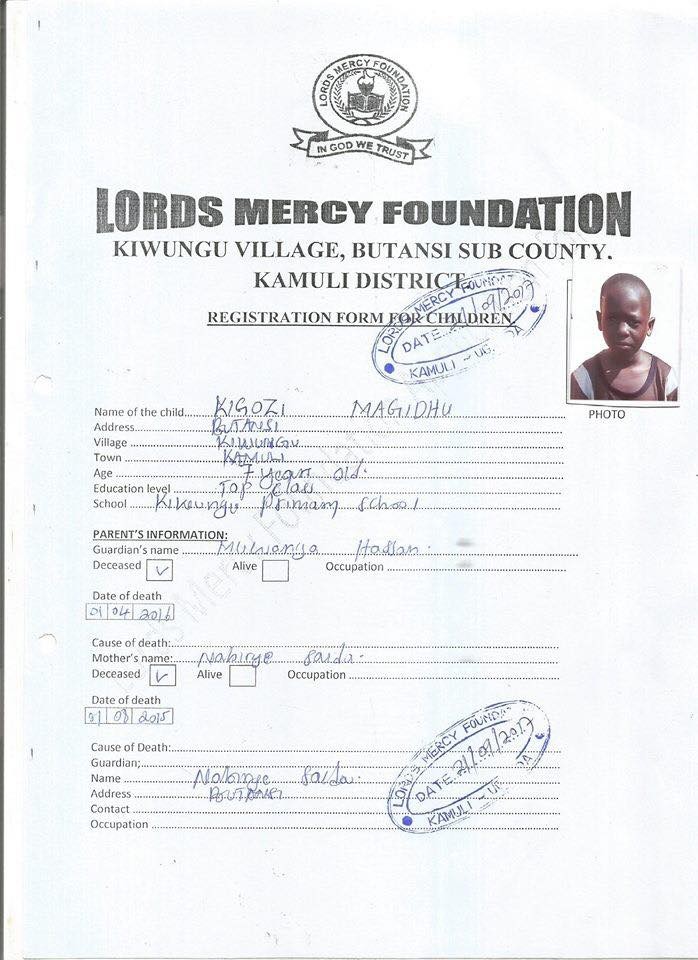 LORDS MERCY FOUNDATION
IN GOD WE TRUST
LORDS MERCY FOUNDATION
KIWUNGU VILLAGE, BUTANSI SUB COUNTY.
KAMULI DISTRICT
REGISTRATION FORM FOR CHILDREN
LORDS MERCY FOUNDAT
DATE. 21/09/2017
KAMULI ~ UG DA
PHOTO
Name of the child KIGOZI MAGIDHU
Address BUTANSI
Village KIWUNGU
Town KAMULI
Age 7 years old.
Education level TOP class
School Kiwungu Primary School
PARENT'S INFORMATION:
Guardian's name Muwanga Hassan.
Deceased ✓ Alive Occupation
Date of death
01 04 2016
Cause of death:
Mother's name: Nabirye Saida.
Deceased ✓ Alive Occupation
Date of death
01 08 2015
Cause of Death:
Guardian;
Name Nabirye Saida.
Address BUTANSI
Contact
Occupation
LORDS MERCY FOUNDAT
DATE. 21/09/2017
KAMULI ~ UG DA